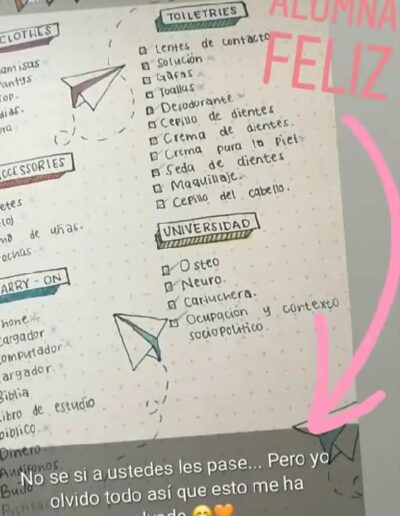 ALUMNA
FELIZ
CLOTHES
amisas
antys
Top.
dias.
ora.
ACCESSORIES
etes
loj
no de uñas.
ochas.
ARRY-ON
hone
argador
omputador
argador.
Biblia
ibro de estudio
biblico.
Dinero
TOILETRIES
Lentes de contacto
Solución
Gafas
Toallas
Desodorante
Cepillo de dientes
Crema de dientes.
Crema para la piel
Seda de dientes
Maquillaje.
Cepillo del cabello.
UNIVERSIDAD
Osteo
Neuro.
Cartuchera.
Ocupación y contexto
sociopolitico.
No se si a ustedes les pase... Pero yo
olvido todo así que esto me ha
😊🧡